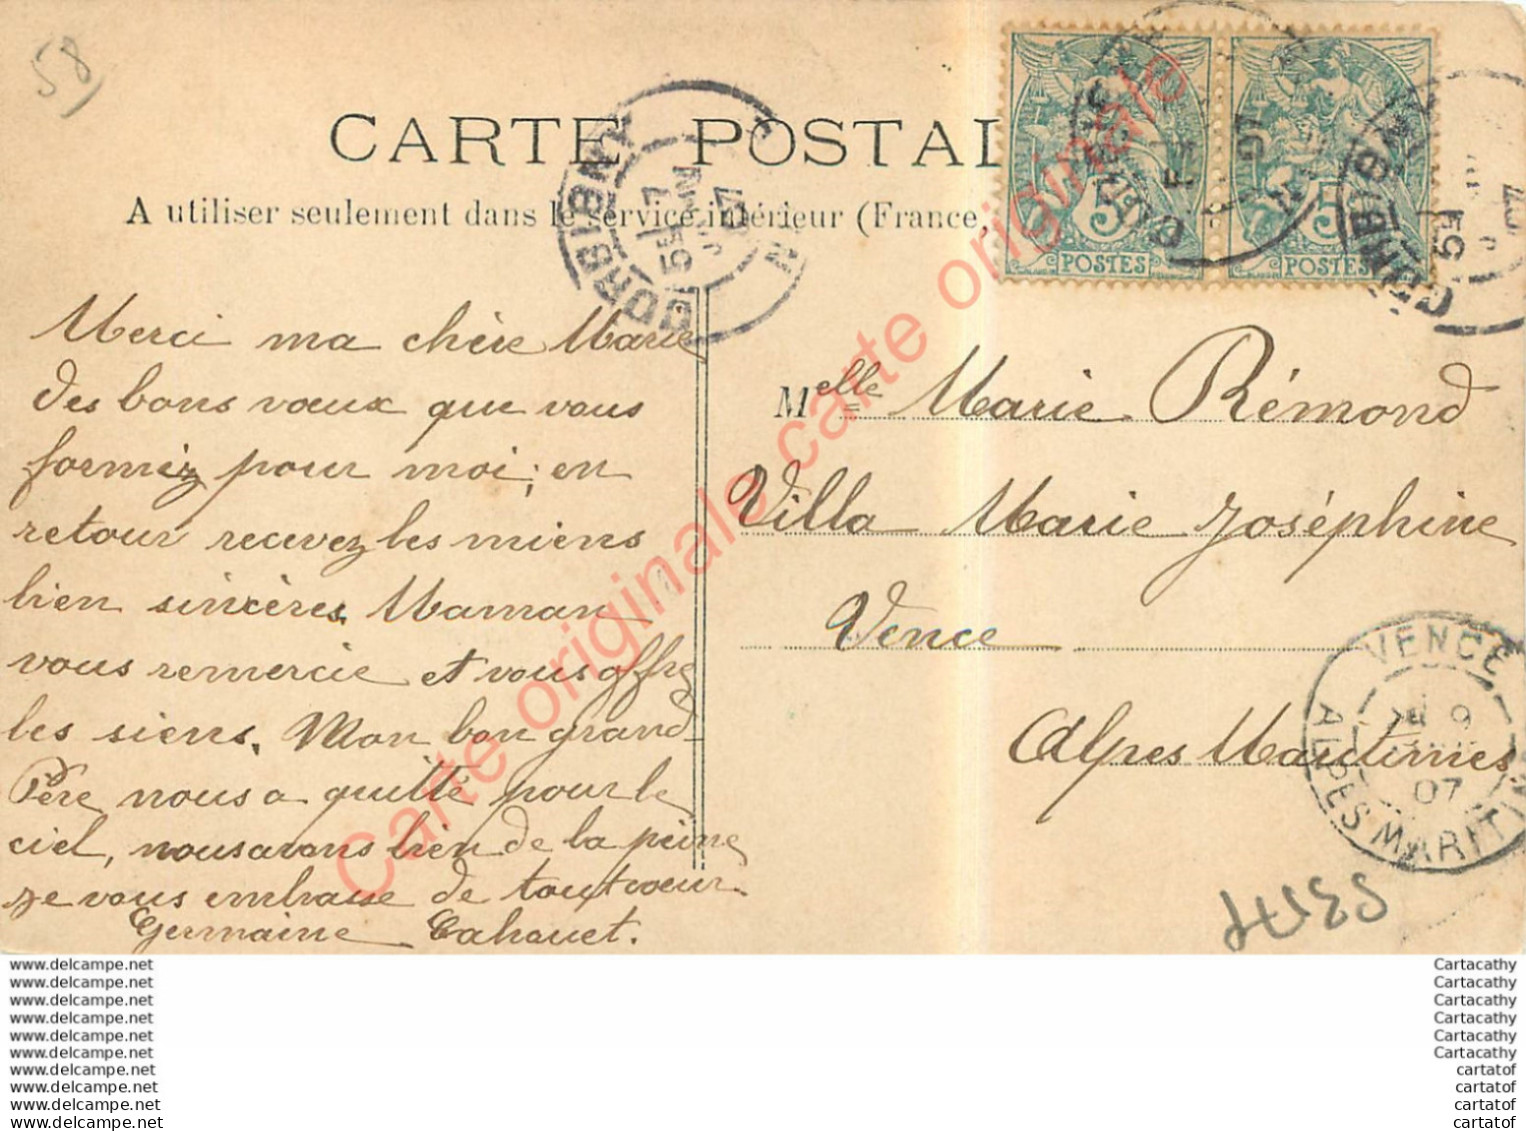 58
CARTE POSTAL
A utiliser seulement dans le service intérieur (France,
CORBIGNY
5E
7
JANV
07
CORBIGNY
CORBIGNY
5E
5
POSTES
5
POSTES
Merci ma chère Marie
des bons vœux que vous
formez pour moi; en
retour recevez les miens
bien sincères. Maman
vous remercie et vous offre
les siens. Mon bon grand
Père nous a quitté pour le
ciel, nous avons bien de la peine
je vous embrasse de tout cœur
Germaine Cahouet.
Melle Marie Rémond
Villa Marie Joséphine
Vence
Alpes Maritimes
VENCE
9
07
ALPES MARIT
Carte originale carte originale
www.delcampe.net
www.delcampe.net
www.delcampe.net
www.delcampe.net
www.delcampe.net
www.delcampe.net
www.delcampe.net
www.delcampe.net
www.delcampe.net
www.delcampe.net
Cartacathy
Cartacathy
Cartacathy
Cartacathy
Cartacathy
Cartacathy
cartatof
cartatof
cartatof
cartatof